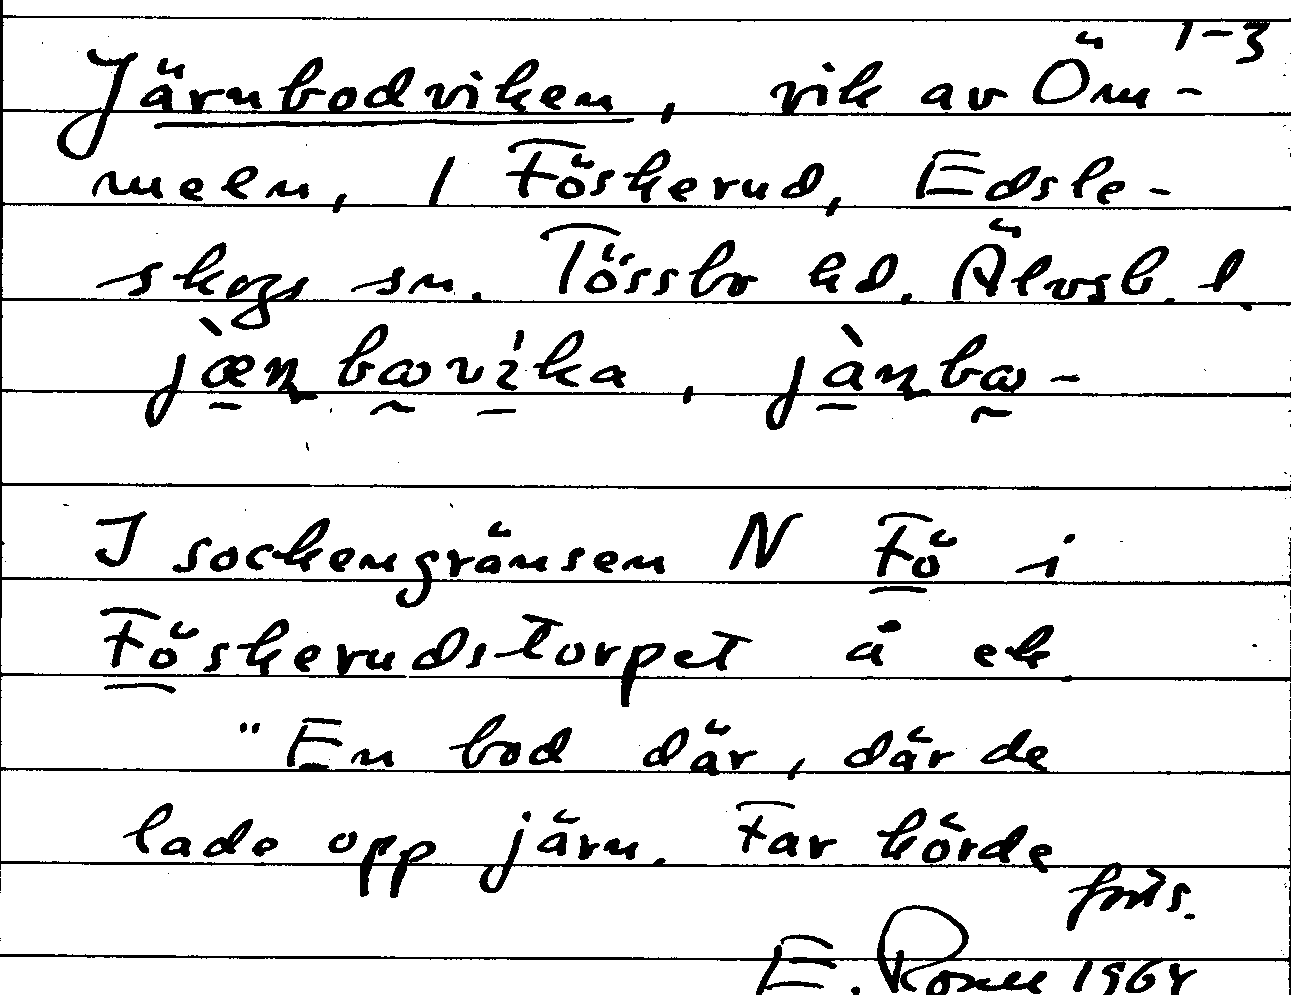 1-3
Järnbodviken, vik av Öm-
meln, 1 Föskerud, Edsle-
skogs sn. Tössbo hd. Älvsb. l.
jæ̀ɳbɷvika, jàɳbɷ-
I sockengränsen N Fö i
Föskerudstorpet å ek.
"En bod där, där de
lade opp järn. Far körde
forts.
E. 1964